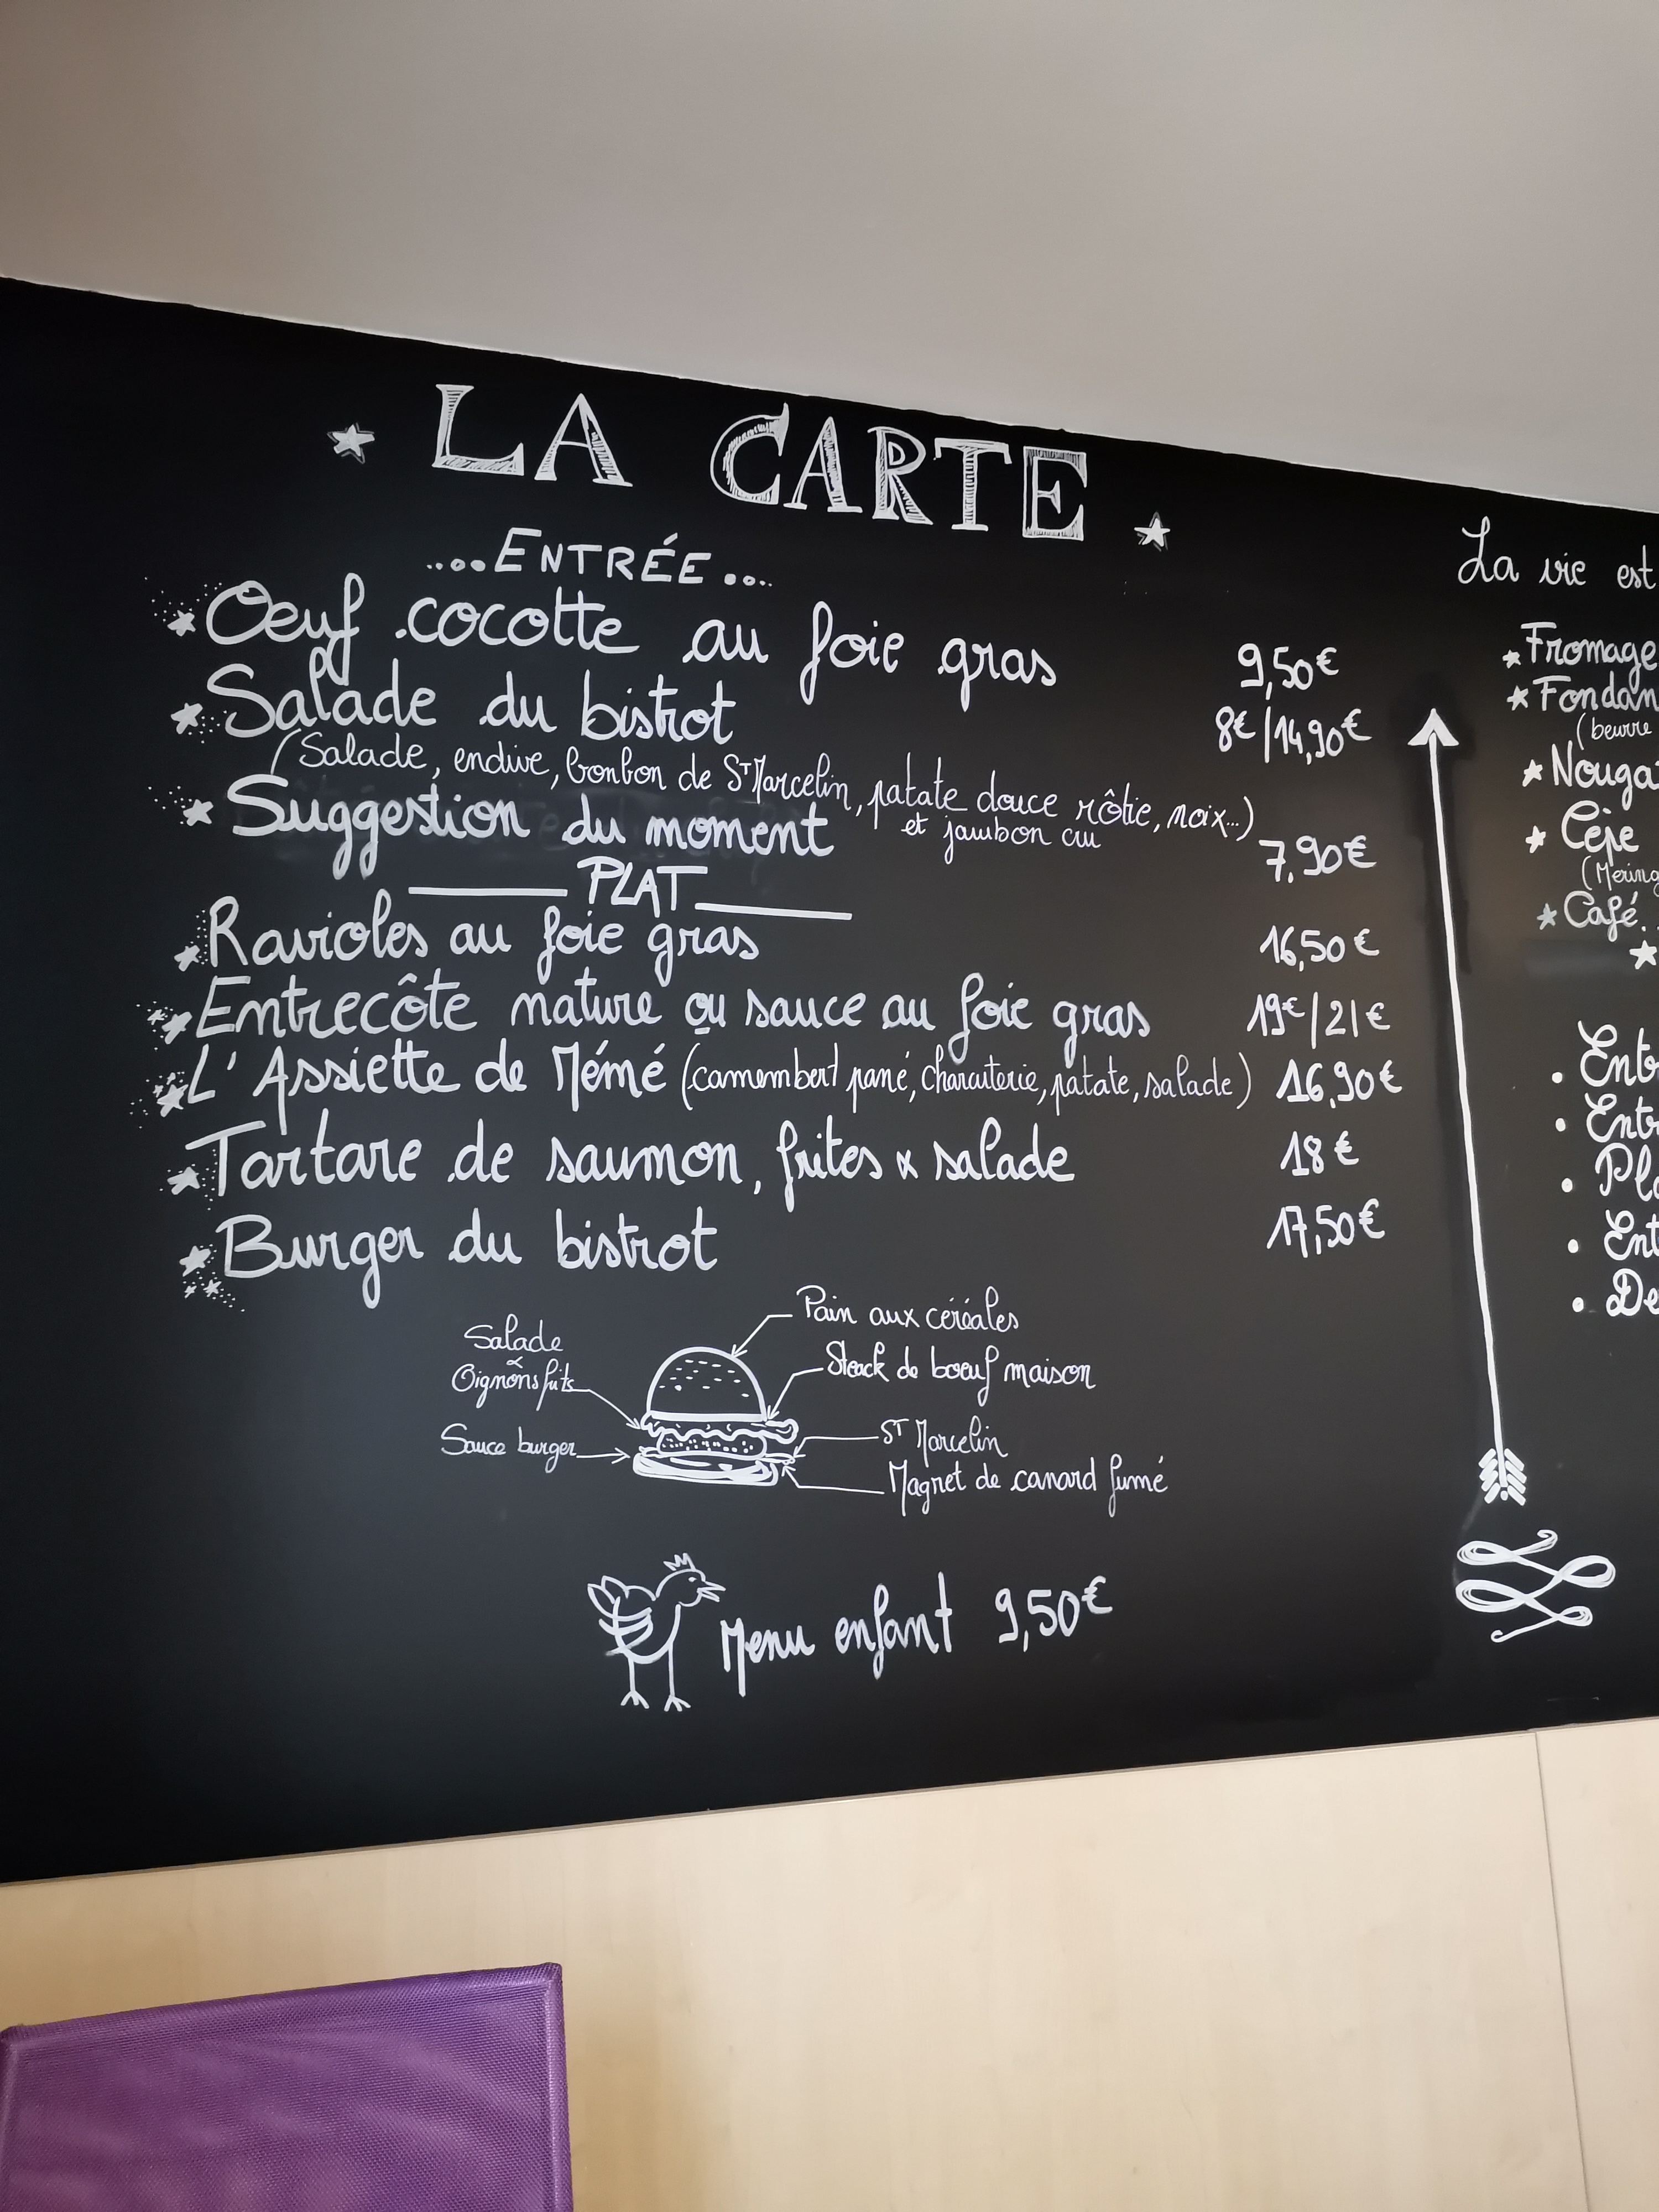 LA CARTE
....ENTRÉE....
Oeuf cocotte au foie gras 9,50€
Salade du bistrot 8€/14,90€
(Salade, endive, bonbon de ST Marcelin, patate douce rôtie, noix...)
et jambon cru
Suggestion du moment 7,90€
PLAT
Ravioles au foie gras 16,50€
Entrecôte nature ou sauce au foie gras 19€/21€
L'Assiette de Mémé (camembert pané, charcuterie, patate, salade) 16,90€
Tartare de saumon, frites & salade 18€
Burger du bistrot 17,50€
Pain aux céréales
Salade
&
Oignons frits
Steack de boeuf maison
Sauce burger
ST Marcelin
Magret de canard fumé
Menu enfant 9,50€
La vie est
Fromage
Fondan
(beurre
Nouga
Cèpe
(Mering
Café..
Ent
Ent
Pla
Ent
De